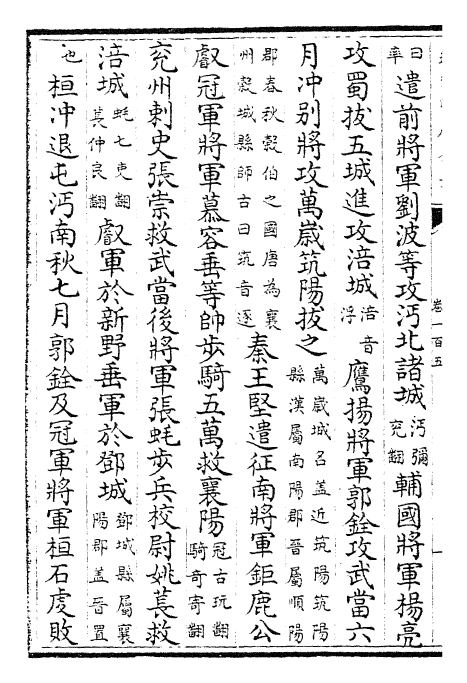 遣前將軍劉波等攻沔北諸城沔彌兖翻輔國將軍楊亮
攻蜀拔五城進攻涪城涪音浮鷹揚將軍郭銓攻武當六
月沖别將攻萬歲筑陽拔之萬歲城名盖近筑陽筑陽縣漢屬南陽郡晉屬順陽
郡春秋穀伯之國唐為襄州穀城縣師古曰筑音逐秦王堅遣征南將軍鉅鹿公
叡冠軍將軍慕容垂等帥步騎五萬救襄陽冠古玩翻騎奇寄翻
兖州刺史張崇救武當後將軍張蚝步兵校尉姚萇救
涪城蚝七吏翻萇仲良翻叡軍於新野垂軍於鄧城鄧城縣屬襄陽郡盖晉置
也桓沖退屯沔南秋七月郭銓及冠軍將軍桓石虔敗
卷一百五